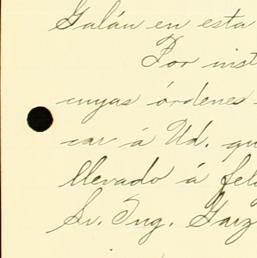 Galán en esta
Por inst
cuyas órdenes
car á Ud. qu
llevado á fel
Sr. Ing. Garz